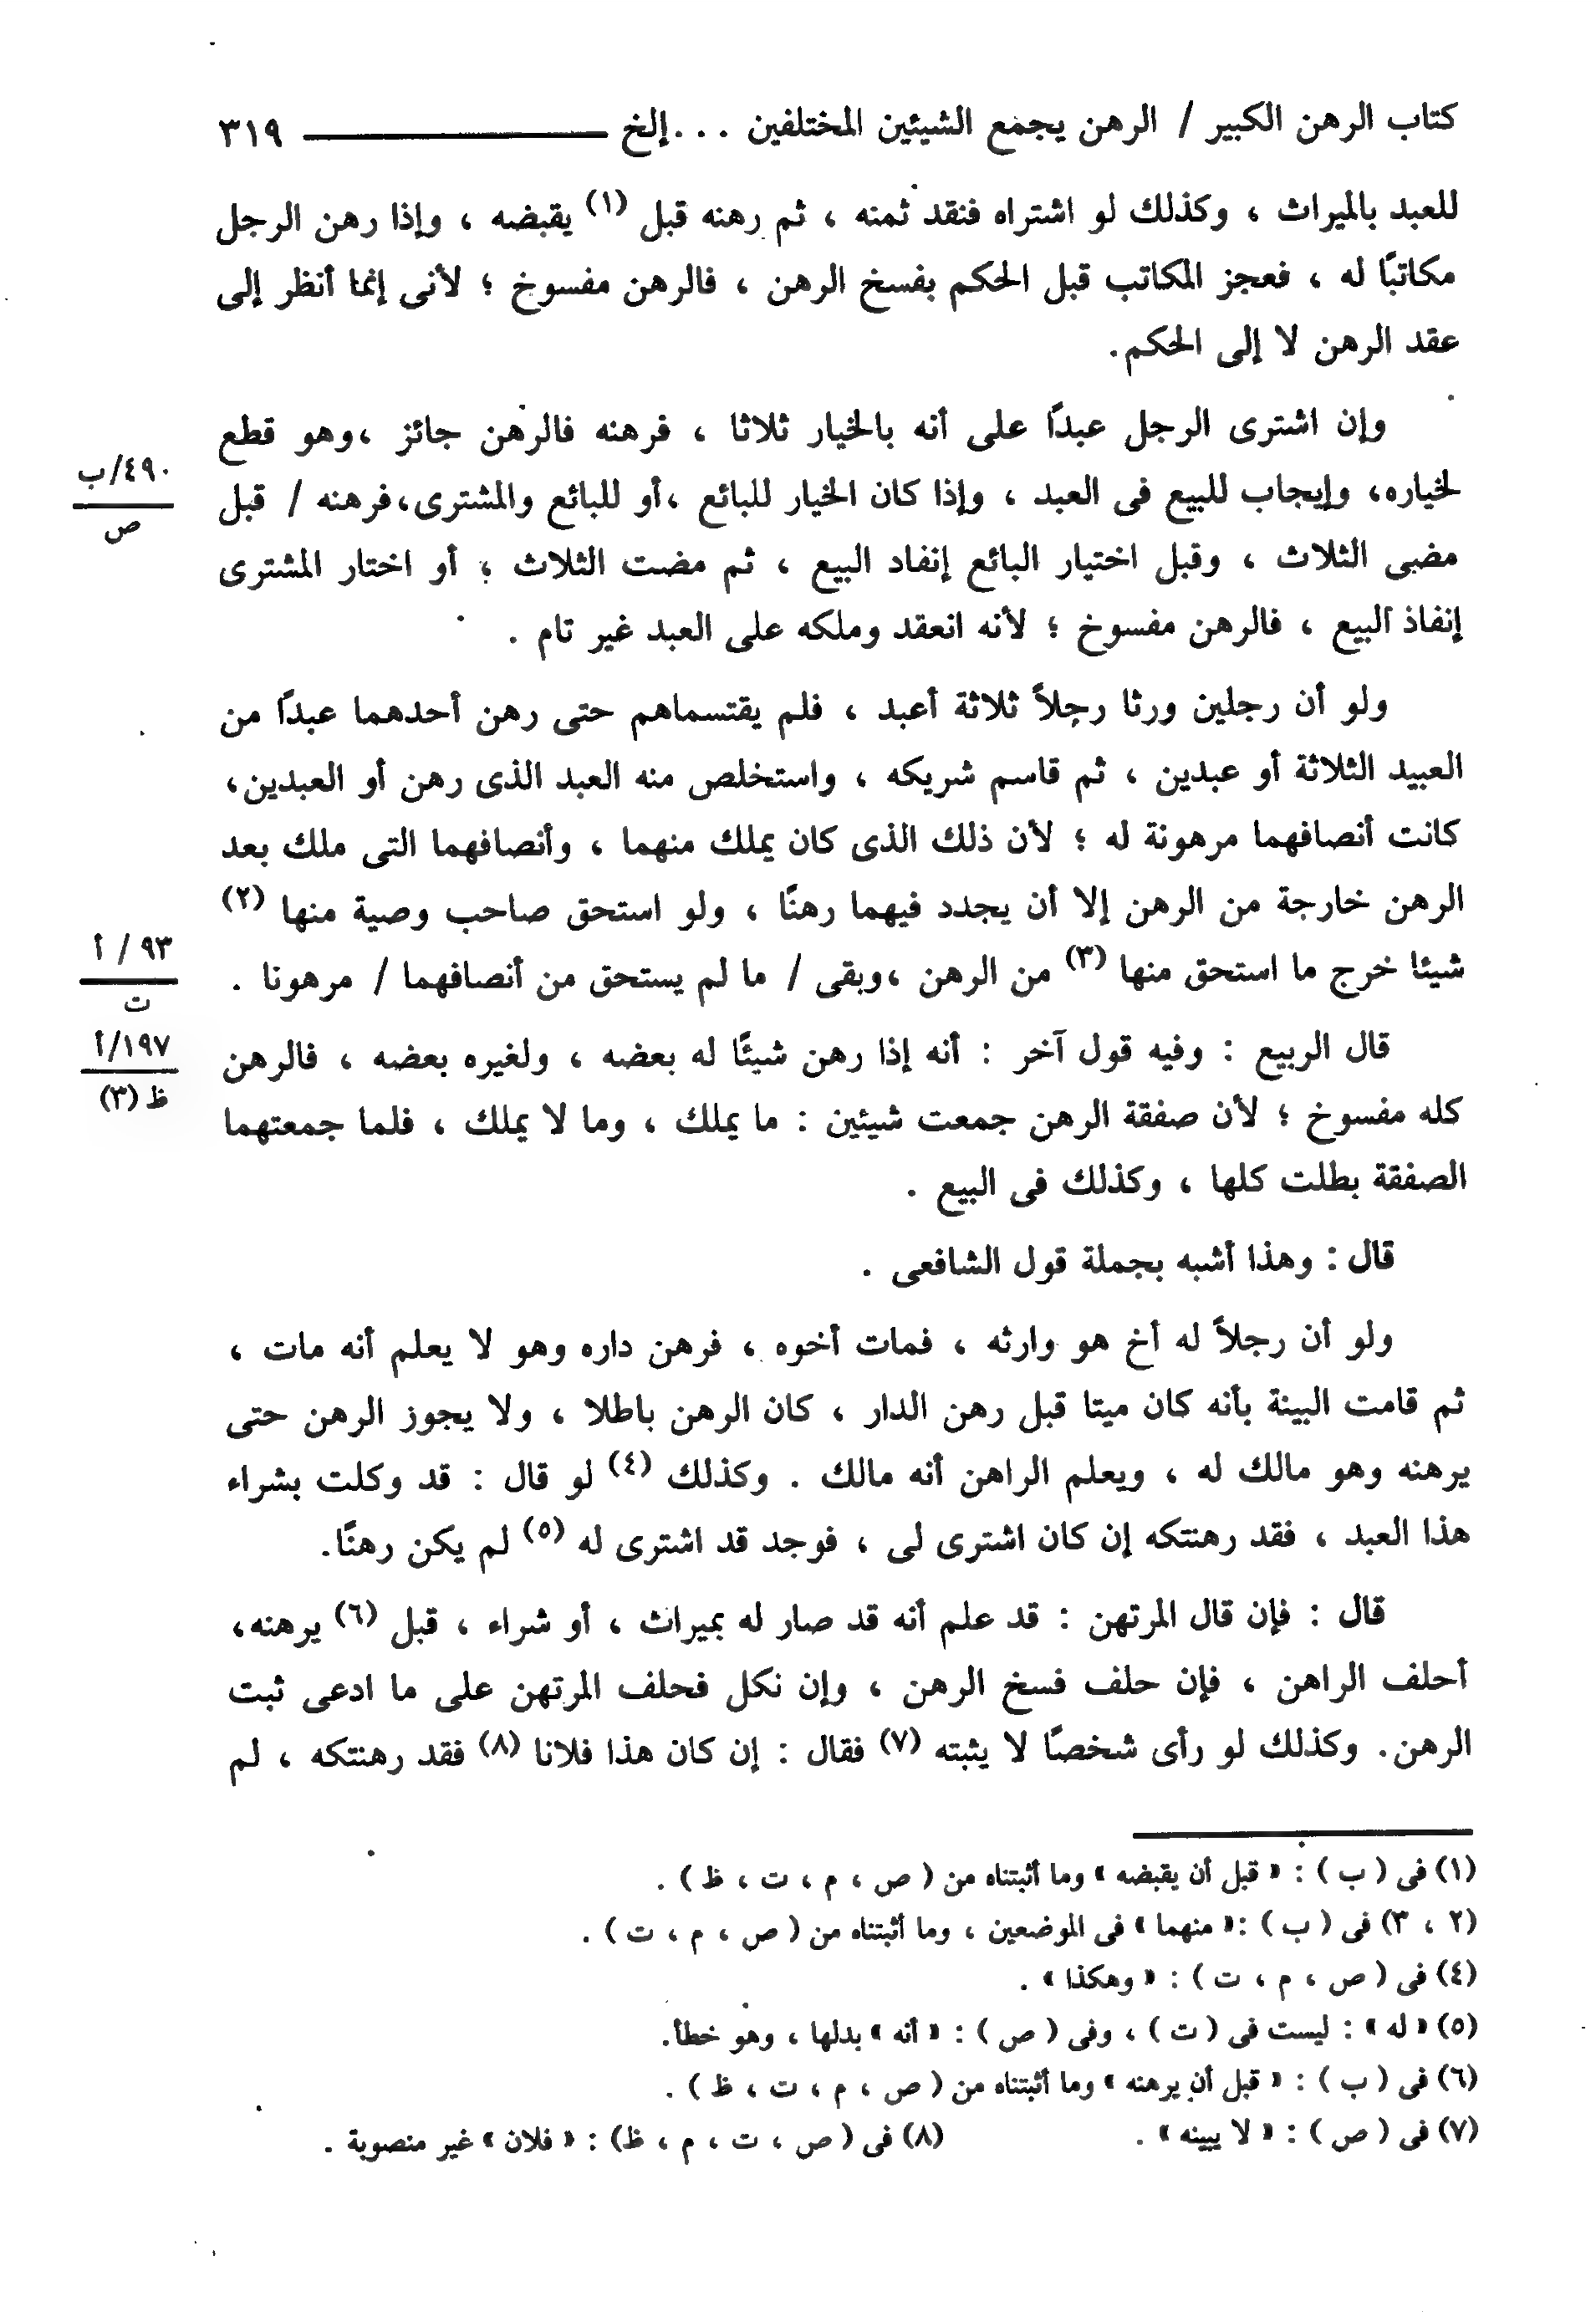 كتاب الرهن الكبير / الرهن يجمع الشيئين المختلفين . . . إلخ ٣١٩
للعبد بالميراث ، وكذلك لو اشتراه فنقد ثمنه ، ثم رهنه قبل (١) يقبضه ، وإذا رهن الرجل
مكاتبًا له ، فعجز المكاتب قبل الحكم بفسخ الرهن ، فالرهن مفسوخ ؛ لأنى إنما أنظر إلى
عقد الرهن لا إلى الحكم.
وإن اشترى الرجل عبدًا على أنه بالخيار ثلاثا ، فرهنه فالرهن جائز ،وهو قطع
لخياره، وإيجاب للبيع فى العبد ، وإذا كان الخيار للبائع ،أو للبائع والمشترى،فرهنه / قبل
٤٩٠/ب
ص
مضى الثلاث ، وقبل اختيار البائع إنفاد البيع ، ثم مضت الثلاث ؛ أو اختار المشترى
إنفاذ البيع ، فالرهن مفسوخ ؛ لأنه انعقد وملكه على العبد غير تام .
ولو أن رجلين ورثا رجلاً ثلاثة أعبد ، فلم يقتسماهم حتى رهن أحدهما عبدًا من
العبيد الثلاثة أو عبدين ، ثم قاسم شريكه ، واستخلص منه العبد الذى رهن أو العبدين،
كانت أنصافهما مرهونة له ؛ لأن ذلك الذى كان يملك منهما ، وأنصافهما التى ملك بعد
الرهن خارجة من الرهن إلا أن يجدد فيهما رهنًا ، ولو استحق صاحب وصية منها (٢)
شيئا خرج ما استحق منها (٣) من الرهن ،وبقى / ما لم يستحق من أنصافهما / مرهونا .
٩٣ / أ
ت
١٩٧/أ
ظ (٣)
قال الربيع : وفيه قول آخر : أنه إذا رهن شيئًا له بعضه ، ولغيره بعضه ، فالرهن
كله مفسوخ ؛ لأن صفقة الرهن جمعت شيئين : ما يملك ، وما لا يملك ، فلما جمعتهما
الصفقة بطلت كلها ، وكذلك فى البيع .
قال : وهذا أشبه بجملة قول الشافعى .
ولو أن رجلاً له أخ هو وارثه ، فمات أخوه ، فرهن داره وهو لا يعلم أنه مات ،
ثم قامت البينة بأنه كان ميتا قبل رهن الدار ، كان الرهن باطلا ، ولا يجوز الرهن حتى
يرهنه وهو مالك له ، ويعلم الراهن أنه مالك . وكذلك (٤) لو قال : قد وكلت بشراء
هذا العبد ، فقد رهنتكه إن كان اشترى لى ، فوجد قد اشترى له (٥) لم يكن رهنًا.
قال : فإن قال المرتهن : قد علم أنه قد صار له بميراث ، أو شراء ، قبل (٦) يرهنه،
أحلف الراهن ، فإن حلف فسخ الرهن ، وإن نكل فحلف المرتهن على ما ادعى ثبت
الرهن. وكذلك لو رأى شخصًا لا يثبته (٧) فقال : إن كان هذا فلانا (٨) فقد رهنتكه ، لم
(١) فى ( ب ) : « قبل أن يقبضه » وما أثبتناه من ( ص ، م ، ت ، ظ ) .
(٢ ، ٣) فى ( ب ) :« منهما » فى الموضعين ، وما أثبتناه من ( ص ، م ، ت ) .
(٤) فى ( ص ، م ، ت ) : « وهكذا » .
(٥) « له » : ليست فى ( ت ) ، وفى ( ص ) : « أنه » بدلها ، وهو خطأ.
(٦) فى ( ب ) : « قبل أن يرهنه » وما أثبتناه من ( ص ، م ، ت ، ظ ) .
(٧) فى ( ص ) : « لا يبينه » . (٨) فى ( ص ، ت ، م ، ظ) : « فلان » غير منصوبة .